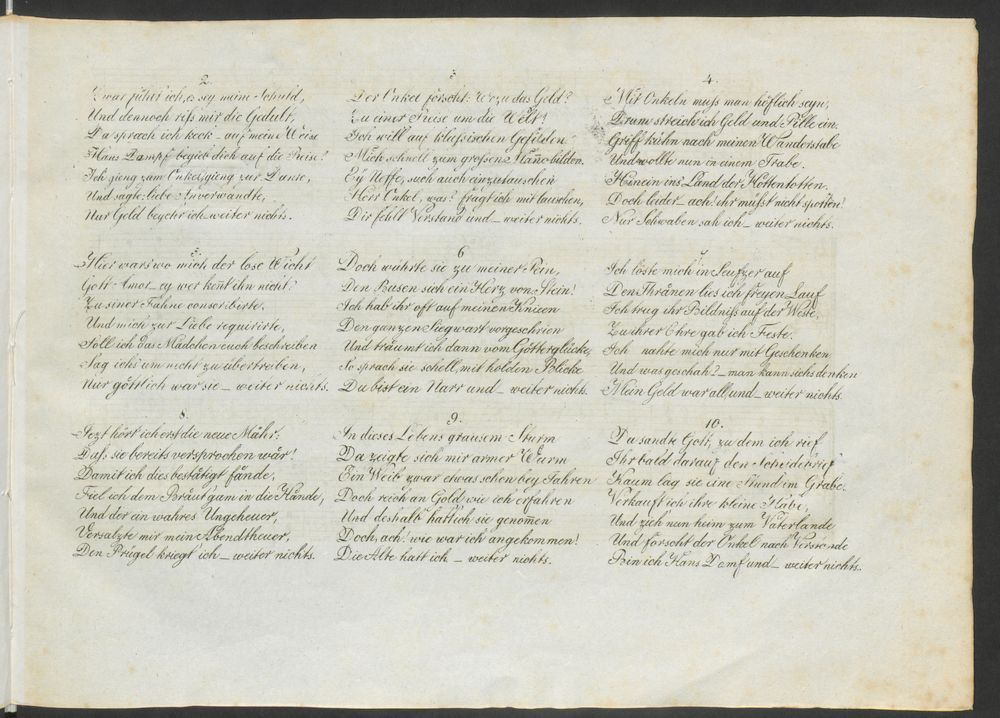 2.
Zwar fühlt ich, es sey meine Schuld,
Und dennoch riß mir die Gedult,
Da sprach ich keck - auf meine Weise
Hans Dampf begieb dich auf die Reise!
Ich gieng zum Onkel, gieng zur Dante,
Und sagte, liebe Anverwandte,
Nur Geld begehr ich weiter nichts.
3
Der Onkel forscht: Wozu das Geld?
Zu einer Reise um die Welt!
Ich will auf klassischen Gefilden
Mich schnell zum großen Mañe bilden.
Ey Neffe, such auch einzutauschen
Herr Onkel, was? fragt ich mit lauschen,
Dir fehlt Verstand und - weiter nichts.
4.
Mit Onkeln muß man höflich seyn,
Drum streich ich Geld und Pille ein.
Griff kühn nach meinen Wanderstabe
Und wollte nun in einem Trabe.
Hinein ins Land der Hottentotten.
Doch leider - ach! ihr müßt nicht spotten!
Nur Schwaben sah ich - weiter nichts.
5
Hier wars wo mich der lose Wicht
Gott Amor - ey wer keñt ihn nicht?
Zu einer Fahne conscribirte,
Und mich zur Liebe requirirte,
Soll ich das Mädchen euch beschreiben
Sag ichs um nicht zu übertreiben,
Nur göttlich war sie - weiter nichts.
6
Doch währte sie zu meiner Pein,
Den Busen sich ein Herz von Stein!
Ich hab ihr oft auf meinen Knieen
Den ganzen Siegwart vorgeschrien
Und träumt ich dann vom Götterglücke,
So sprach sie schell, mit holden Blicke
Du bist ein Narr und - weiter nichts.
7
Ich löste mich in Seufzer auf
Den Thränen lies ich freyen Lauf
Ich trug ihr Bildniß auf der Weste,
Zu ihrer Ehre gab ich Feste.
Ich nahte mich nur mit Geschenken
Und was geschah? - man kann sichs denken
Mein Geld war all, und - weiter nichts.
8.
Jezt hört ich erst die neue Mähr:
Daß sie bereits versprochen wär!
Damit ich dies bestätigt fände,
Fiel ich dem Bräutgam in die Hände,
Und der ein wahres Ungeheuer,
Versalzte mir mein Abendtheuer,
Den Prügel kriegt ich - weiter nichts.
9.
In dieses Lebens grausem Sturm
Da zeigte sich mir armer Wurm
Ein Weib zwar etwas schon bey Jahren
Doch reich an Gold, wie ich erfahren
Und deshalb hatt ich sie genom̃en
Doch, ach! wie war ich angekommen!
Die Alte hatt ich - weiter nichts.
10.
Da sandte Gott, zu dem ich rief
Ihr bald darauf den Scheidebrief
Kaum lag sie eine Stund im Grabe.
Verkauft ich ihre kleine Habe,
Und zieh nun heim zum Vaterlande
Und forscht der Onkel nach Verstande
Bin ich Hans Damf und - weiter nichts.